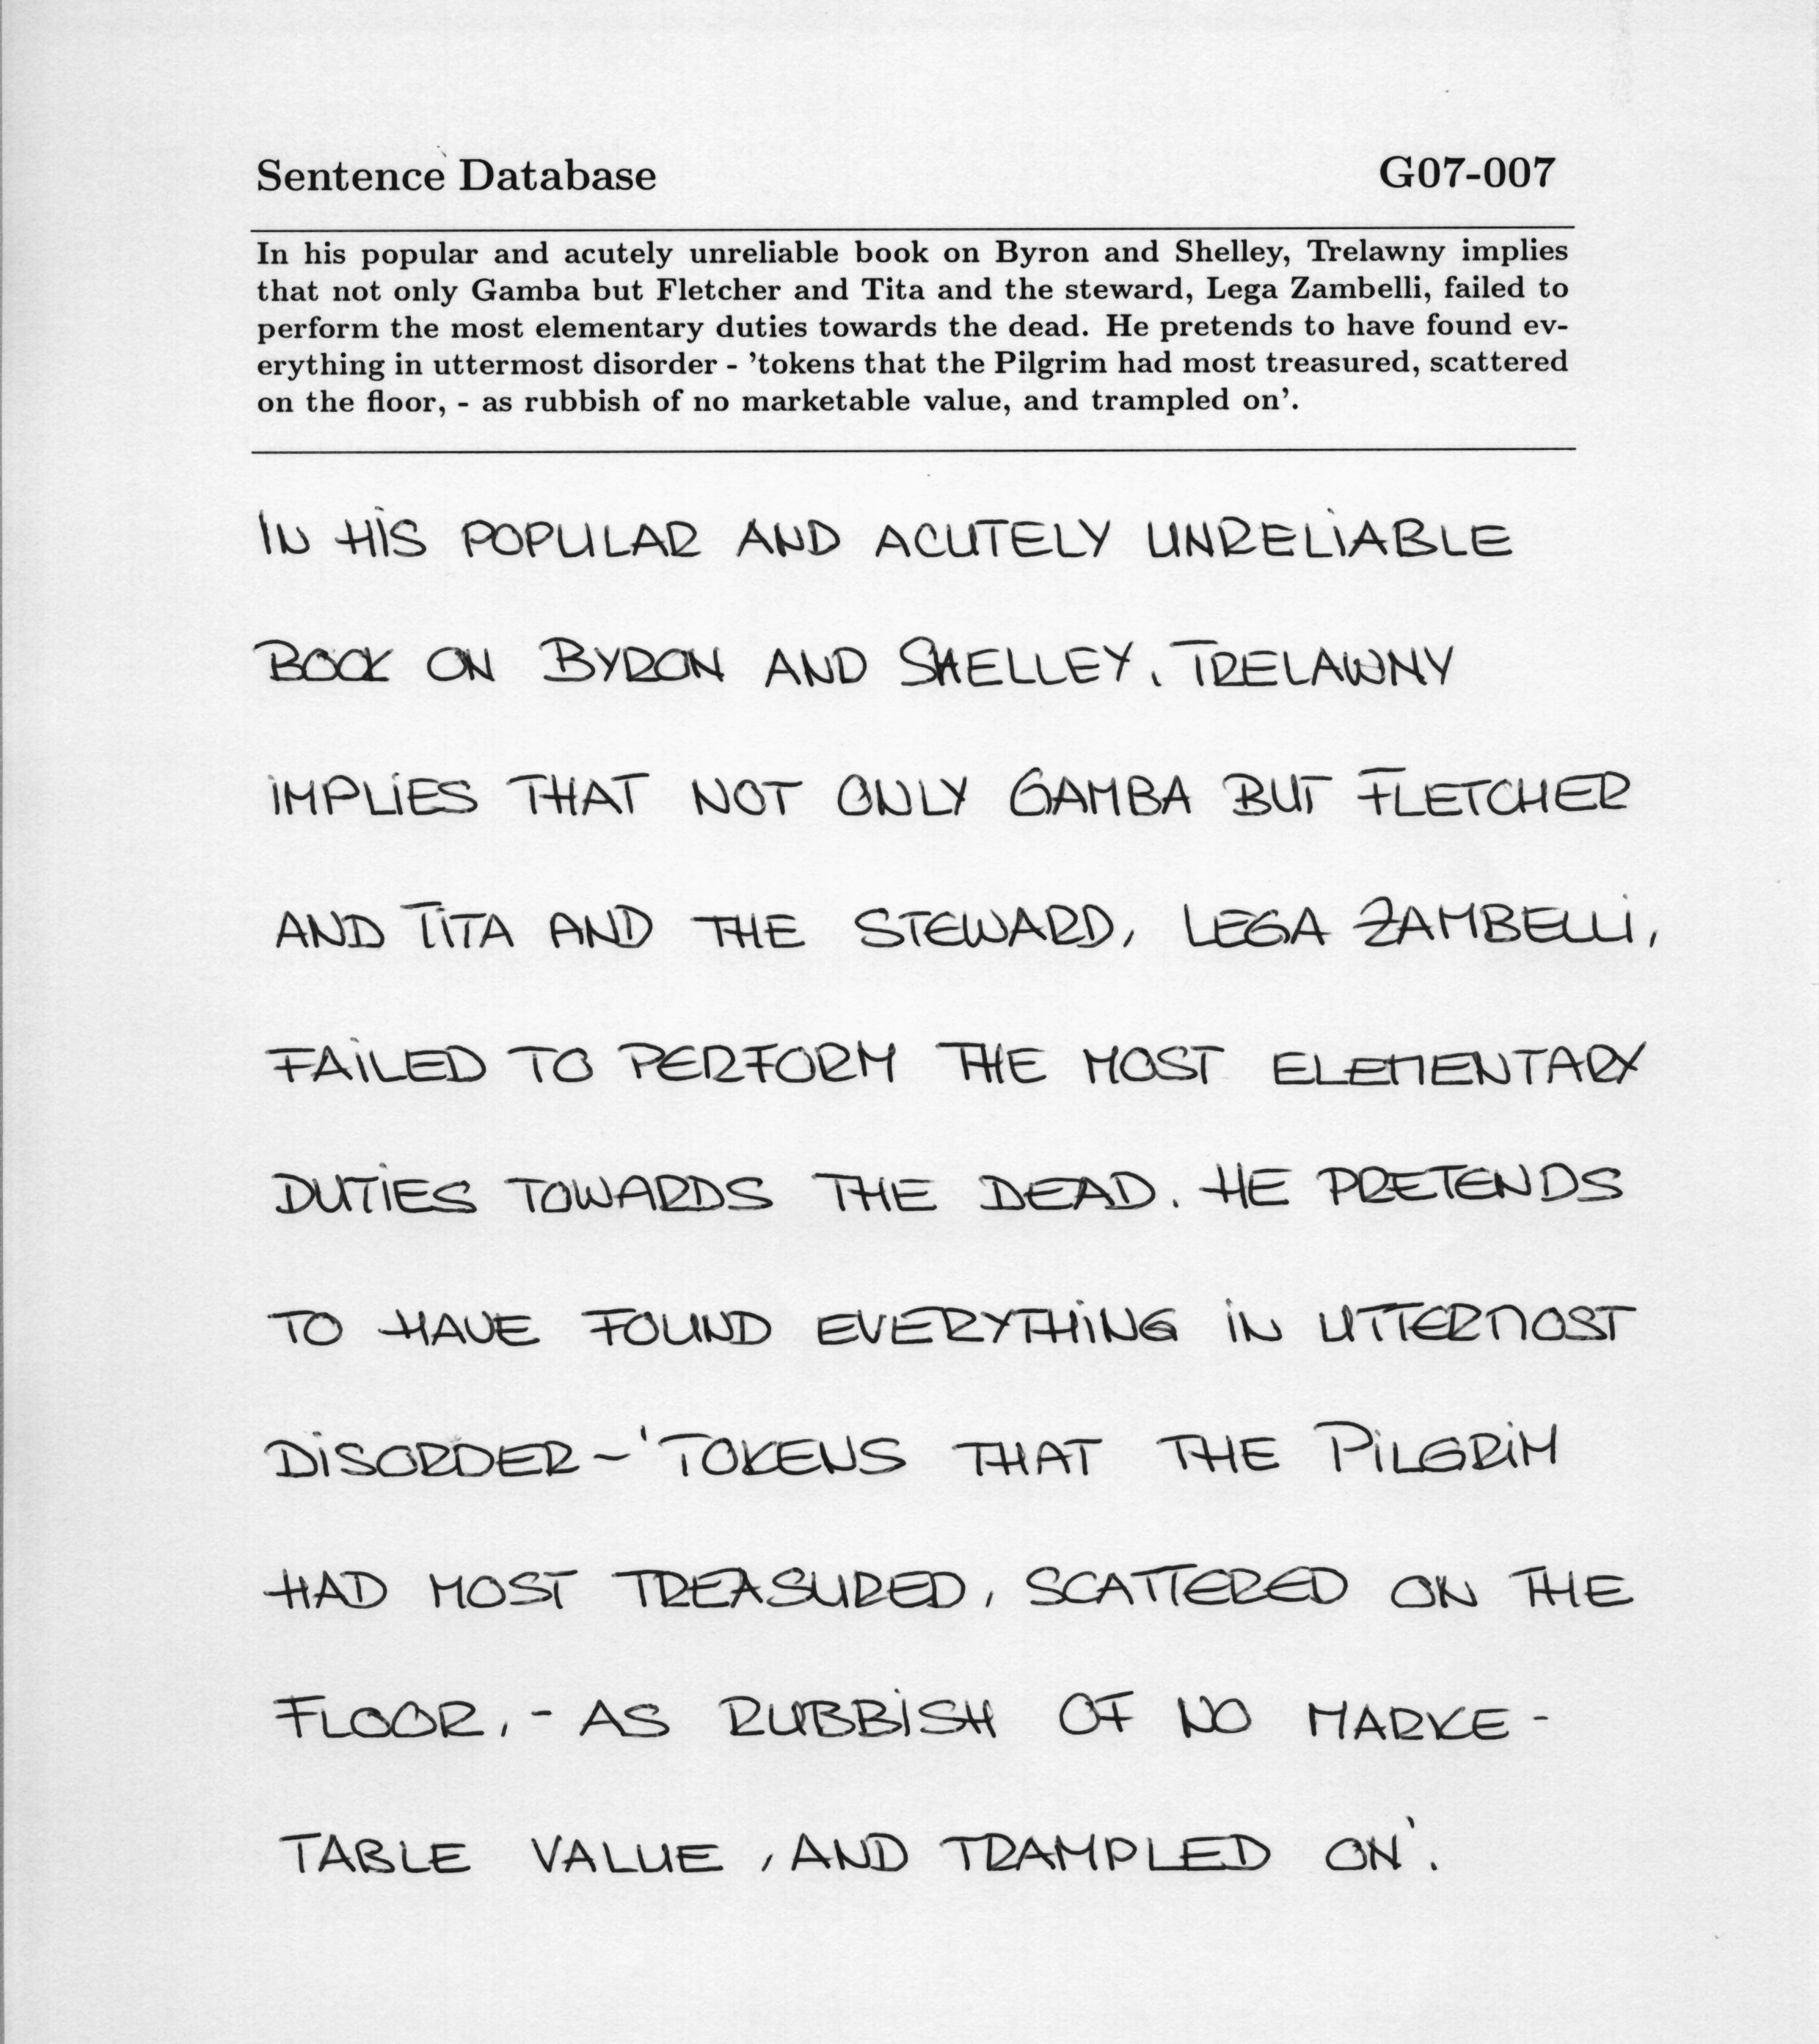 Sentence Database G07-007
In his popular and acutely unreliable book on Byron and Shelley, Trelawny implies
that not only Gamba but Fletcher and Tita and the steward, Lega Zambelli, failed to
perform the most elementary duties towards the dead. He pretends to have found ev-
erything in uttermost disorder - 'tokens that the Pilgrim had most treasured, scattered
on the floor, - as rubbish of no marketable value, and trampled on'.
IN HiS POPULAR AND ACUTELY UNRELiABLE
BOOK ON BYRON AND SHELLEY, TRELAWNY
iMPLiES THAT NOT ONLY GAMBA BUT FLETCHER
AND TiTA AND THE STEWARD, LEGA ZAMBELLi,
FAiLED TO PERFORM THE MOST ELEMENTARY
DUTiES TOWARDS THE DEAD. HE PRETENDS
TO HAVE FOUND EVERYTHiNG iN UTTERMOST
DiSORDER - 'TOKENS THAT THE PiLGRiM
HAD MOST TREASURED, SCATTERED ON THE
FLOOR, - AS RUBBiSH OF NO MARKE -
TABLE VALUE , AND TRAMPLED ON'.